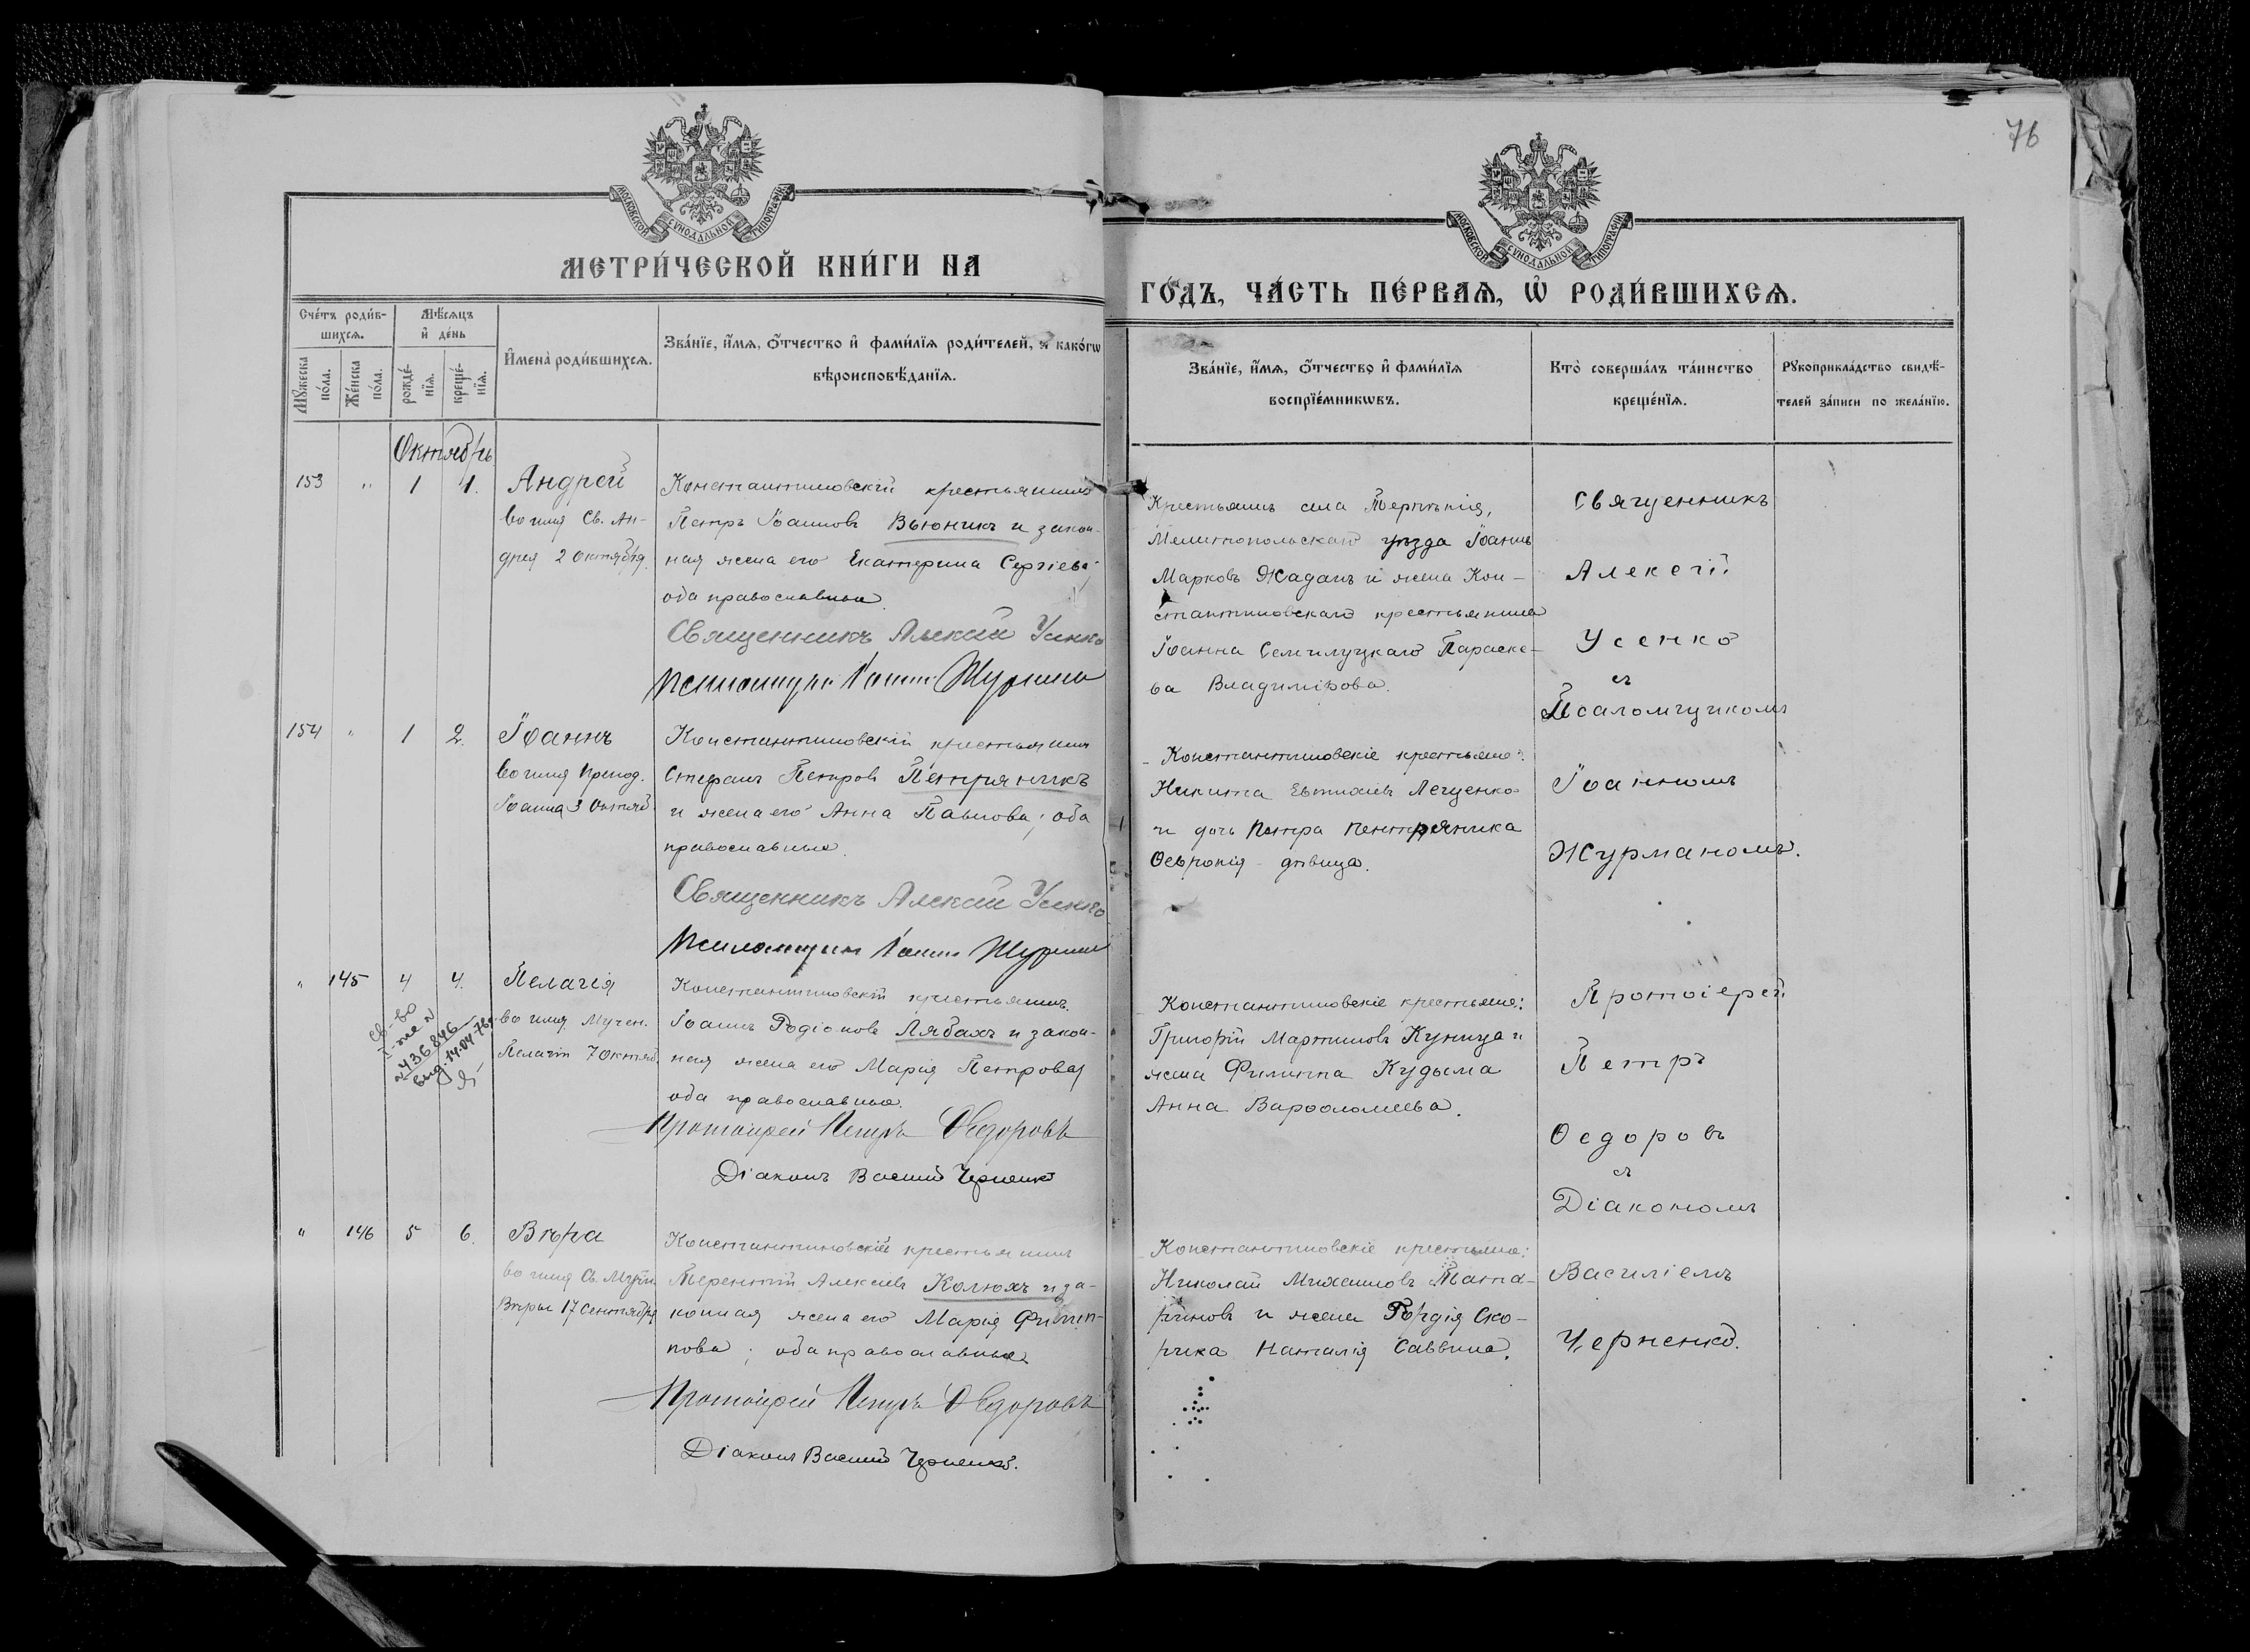 76
МОСКОВСКОЙ СѴНОДАЛЬНОЙ ТИПОГРАФІИ
МОСКОВСКОЙ СѴНОДАЛЬНОЙ ТИПОГРАФІИ
МЕТРИ́ЧЕСКОЙ КНИ́ГИ НА
ГО́ДЪ, ЧА́СТЬ ПЕ́РВАѦ, Ѡ҆ РОДИ́ВШИХСѦ.
Сче́тъ роди́в-
шихсѧ.
Мѣ́сѧцъ
и҆ де́нь
Мꙋ́жеска
по́ла.
Же́нска
по́ла.
рожде́-
нїѧ.
креще́-
нїѧ.
И҆мена̀ роди́вшихсѧ.
Зва́нїе, и҆́мѧ, ѻ҆́тчество и҆ фами́лїѧ роди́телей, и҆ како́гѡ
вѣроисповѣ́данїѧ.
Зва́нїе, и҆́мѧ, ѻ҆́тчество и҆ фами́лїѧ
воспрїе́мникѡвъ.
Кто̀ соверша́лъ та́инство
креще́нїѧ.
Рꙋкоприкла́дство свидѣ́-
телей за́писи по жела́нїю.
Октябрь
153 " 1 1.
Андрей
во имя Св. Ан-
дрея 2 Октября.
Константиновскій крестьянинъ
Петръ Іоанновъ Вьюникъ и закон-
ная жена его Екатерина Сергіева;
оба православные.
Священникъ Алексій Усенко
Псаломщикъ Іоаннъ Журманъ
Крестьянинъ села Терпѣнія,
Мелитопольскаго уѣзда Іоаннъ
Марковъ Жаданъ и жена Кон-
стантиновскаго крестьянина
Іоанна Семилуцкаго Параске-
ва Владимірова.
Священникъ
Алексій
Усенко
съ
Псаломщикомъ
154 " 1 2.
Іоаннъ
во имя Препод.
Іоанна 3 Октяб.
Константиновскій крестьянинъ
Стефанъ Петровъ Петряникъ
и жена его Анна Павлова; оба
православные.
Священникъ Алексій Усенко
Псаломщикъ Іоаннъ Журманъ
Константиновскіе крестьяне:
Никита Евтихіевъ Лещенко
и дочь Петра Петряника
Ѳевронія - дѣвица.
Іоанномъ
Журманомъ.
" 145 4 4.
св-во
I-же N
N436846
выд. 14.04.76г.
Пелагія
во имя Мучен.
Пелагіи 7 Октяб.
Константиновскій крестьянинъ
Іоаннъ Родіоновъ Лябахъ и закон-
ная жена его Марія Петрова;
оба православные.
Протоіерей Петръ Ѳедоровъ
Діаконъ Василій Черненко
Константиновскіе крестьяне:
Григорій Мартиновъ Куница и
жена Филиппа Кудыма
Анна Варѳоломеева.
Протоіерей
Петръ
Ѳедоровъ
съ
Діакономъ
" 146 5 6.
Вѣра
во имя Св. Муч.
Вѣры 17 Сентября
Константиновскій крестьянинъ
Терентій Алексіевъ Колюхъ и за-
конная жена его Марія Филип-
пова; оба православные.
Протоіерей Петръ Ѳедоровъ
Діаконъ Василій Черненко.
Константиновскіе крестьяне:
Николай Михаиловъ Тата-
риновъ и жена Гордія Ско-
рика Наталія Саввина.
Василіемъ
Черненко.